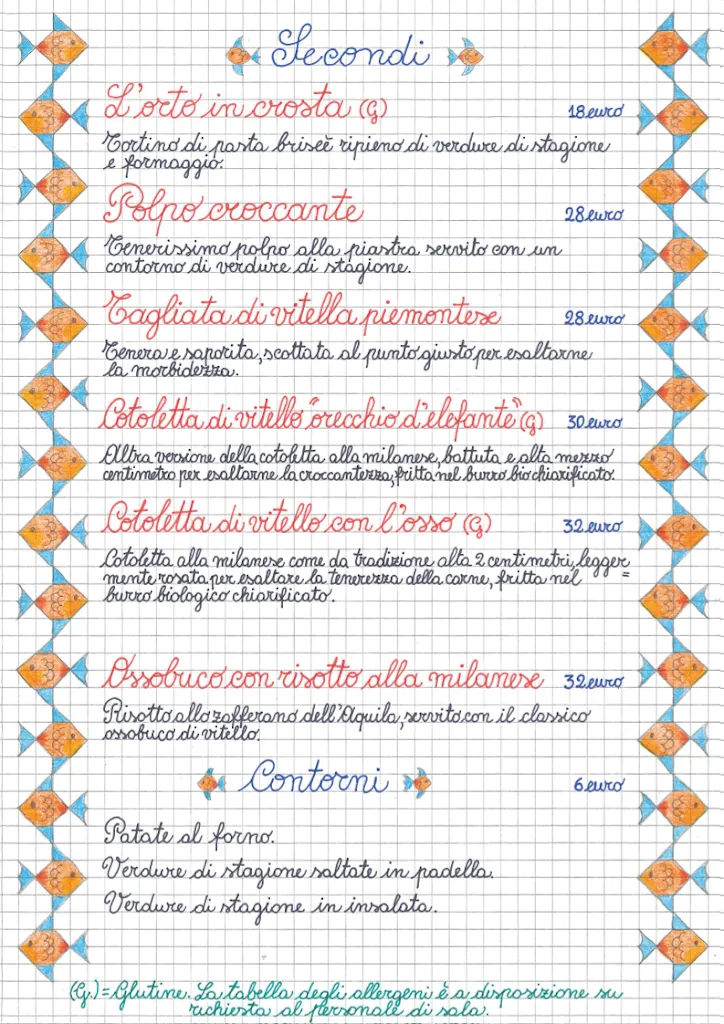 Secondi
L'orto in crosta (G) 18 euro
Tortino di pasta briseè ripieno di verdure di stagione
e formaggio.
Polpo croccante 28 euro
Tenerissimo polpo alla piastra servito con un
contorno di verdure di stagione.
Tagliata di vitella piemontese 28 euro
Tenera e saporita, scottata al punto giusto per esaltarne
la morbidezza.
Cotoletta di vitello "orecchio d'elefante" (G) 30 euro
Altra versione della cotoletta alla milanese, battuta e alta mezzo
centimetro per esaltarne la croccantezza, fritta nel burro bio chiarificato.
Cotoletta di vitello con l'osso (G) 32 euro
Cotoletta alla milanese come da tradizione alta 2 centimetri, legger=
mente rosata per esaltare la tenerezza della carne, fritta nel
burro biologico chiarificato.
Ossobuco con risotto alla milanese 32 euro
Risotto allo zafferano dell'Aquila, servito con il classico
ossobuco di vitello.
Contorni 6 euro
Patate al forno.
Verdure di stagione saltate in padella.
Verdure di stagione in insalata.
(G.) = Glutine. La tabella degli allergeni è a disposizione su
richiesta al personale di sala.